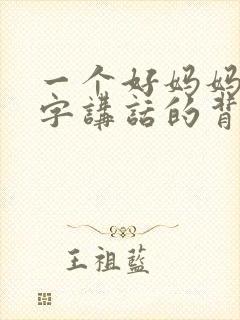 一个好妈妈
字講話的背
王祖藍